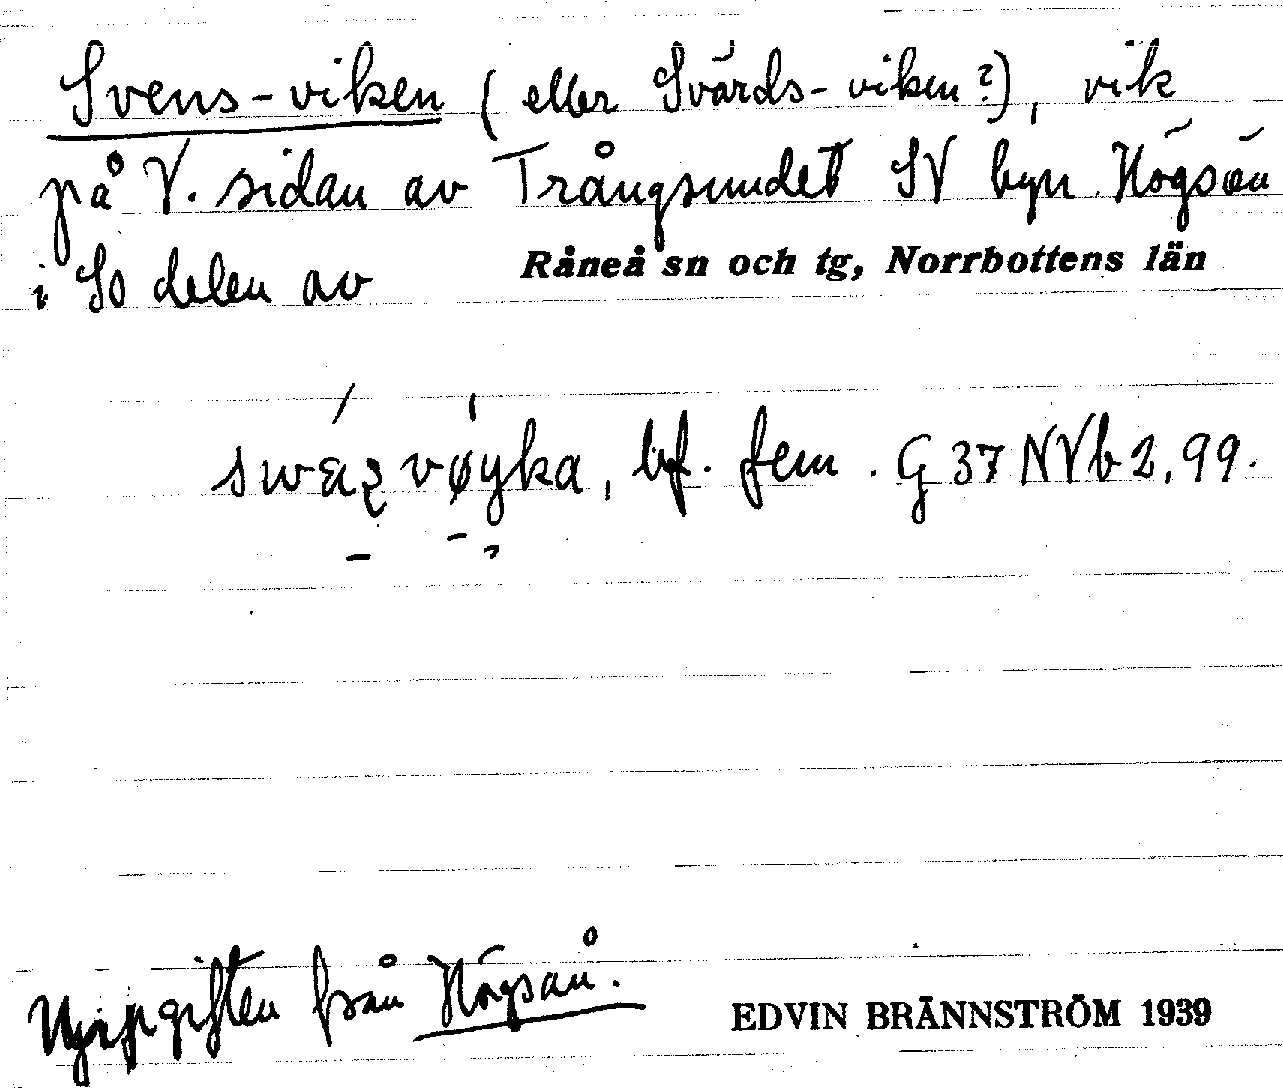 Svens-viken (eller Svärds-viken?), vik
på V. sidan av Trångsundet SV byn Högsön
i So delen av Råneå sn och tg, Norrbottens län
bf. fem. G 37 NVb 2, 99.
Uppgiften från Högsön.
EDVIN BRÄNNSTRÖM 1939